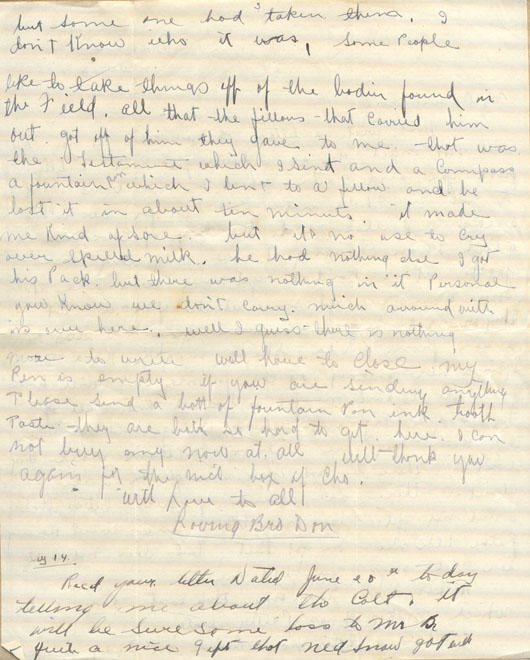 but some one had taken them. I
don't Know who it was, some People
like to take things off of the bodies found in
the Field. all that the fillows that carried him
out. got off of him they gave to me. that was
the Testament which I sint and a Compass
a fountain pen which I lent to a fillow and he
lost it in about ten minuts. it made
me Kind of Sore. but its no use to Cry
over spilled milk. he had nothing else I got
his Pack. but there was nothing in it Personal
you Know we don't carry. much around with
us over here. well I guess there is nothing
more to write will have to close. my
Pen is empty if you are sending anything
Please send a bott of fountain Pen ink. tooth
Paste they are both so hard to get. here. I can
not buy any now at. all will thank you
again for the nice box of Cho.
with Love to all
Loving Bro Don
14.
Recd your letter Dated June 20th to day
telling me about the Colt. it
will be sure some loss to Mr B
quite a nice gift that ned Snow got